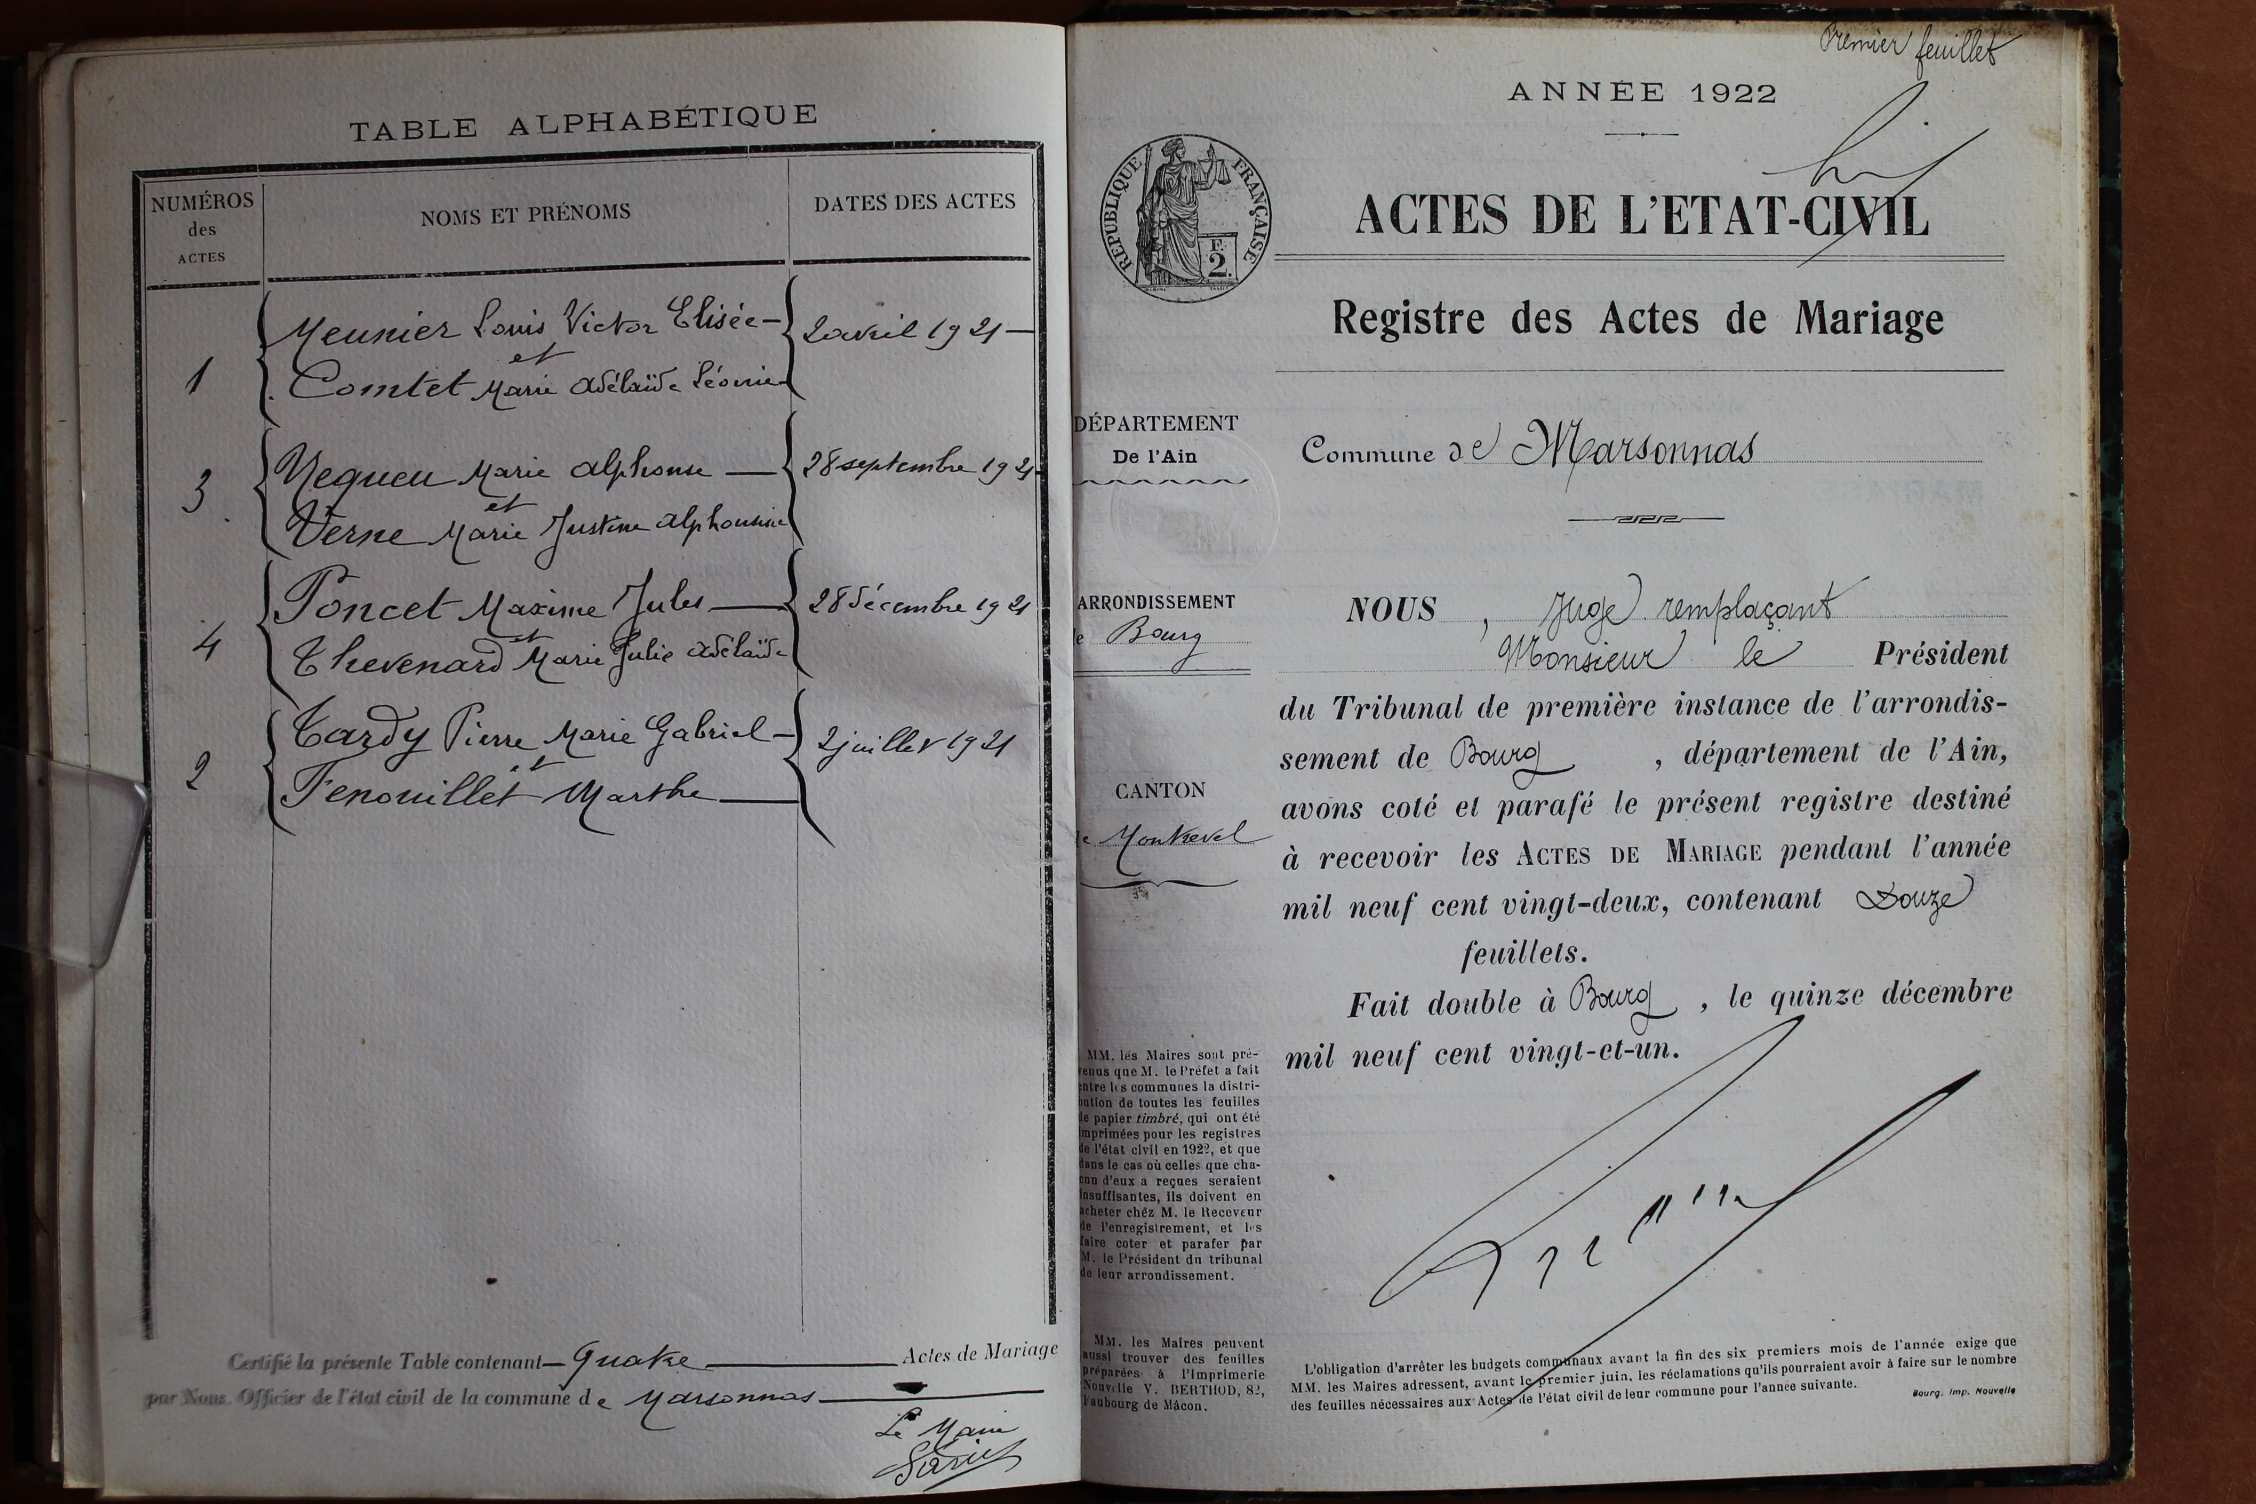 TABLE ALPHABÉTIQUE
NUMÉROS
des
ACTES
NOMS ET PRÉNOMS
DATES DES ACTES
Meunier Louis Victor Elisée — 2 avril 1921 —
1
et
Comtet Marie Adélaïde Léonie
Marie Alphonse — 28 septembre 1921
3
et
Verne Marie Justine Alphonsine
Poncet Maxime Jules — 28 décembre 1921
4
et
Thevenard Marie Julie Adélaïde
Tardy Pierre Marie Gabriel — 2 juillet 1921
2
et
Fenouillet Marthe —
Certifié la présente Table contenant — Quatre — Actes de Mariage
par Nous, Officier de l'état civil de la commune de Marsonnas —
Le Maire
Premier feuillet
ANNÉE 1922
RÉPUBLIQUE FRANÇAISE
F.
2.
ACTES DE L'ETAT-CIVIL
Registre des Actes de Mariage
DÉPARTEMENT
De l'Ain
Commune de Marsonnas
ARRONDISSEMENT
de Bourg
CANTON
de Montrevel
NOUS, Juge remplaçant
Monsieur le Président
du Tribunal de première instance de l'arrondis-
sement de Bourg , département de l'Ain,
avons coté et parafé le présent registre destiné
à recevoir les ACTES DE MARIAGE pendant l'année
mil neuf cent vingt-deux, contenant Douze
feuillets.
Fait double à Bourg , le quinze décembre
mil neuf cent vingt-et-un.
MM. les Maires sont pré-
venus que M. le Préfet a fait
entre les communes la distri-
bution de toutes les feuilles
de papier timbré, qui ont été
imprimées pour les registres
de l'état civil en 1922, et que
dans le cas où celles que cha-
cun d'eux a reçues seraient
insuffisantes, ils doivent en
acheter chéz M. le Receveur
de l'enregistrement, et les
faire coter et parafer par
M. le Président du tribunal
de leur arrondissement.
MM. les Maires peuvent
aussi trouver des feuilles
préparées à l'Imprimerie
Nouvelle V. BERTHOD, 82,
Faubourg de Mâcon.
L'obligation d'arrêter les budgets communaux avant la fin des six premiers mois de l'année exige que
MM. les Maires adressent, avant le premier juin, les réclamations qu'ils pourraient avoir à faire sur le nombre
des feuilles nécessaires aux Actes de l'état civil de leur commune pour l'année suivante.
Bourg. Imp. Nouvelle